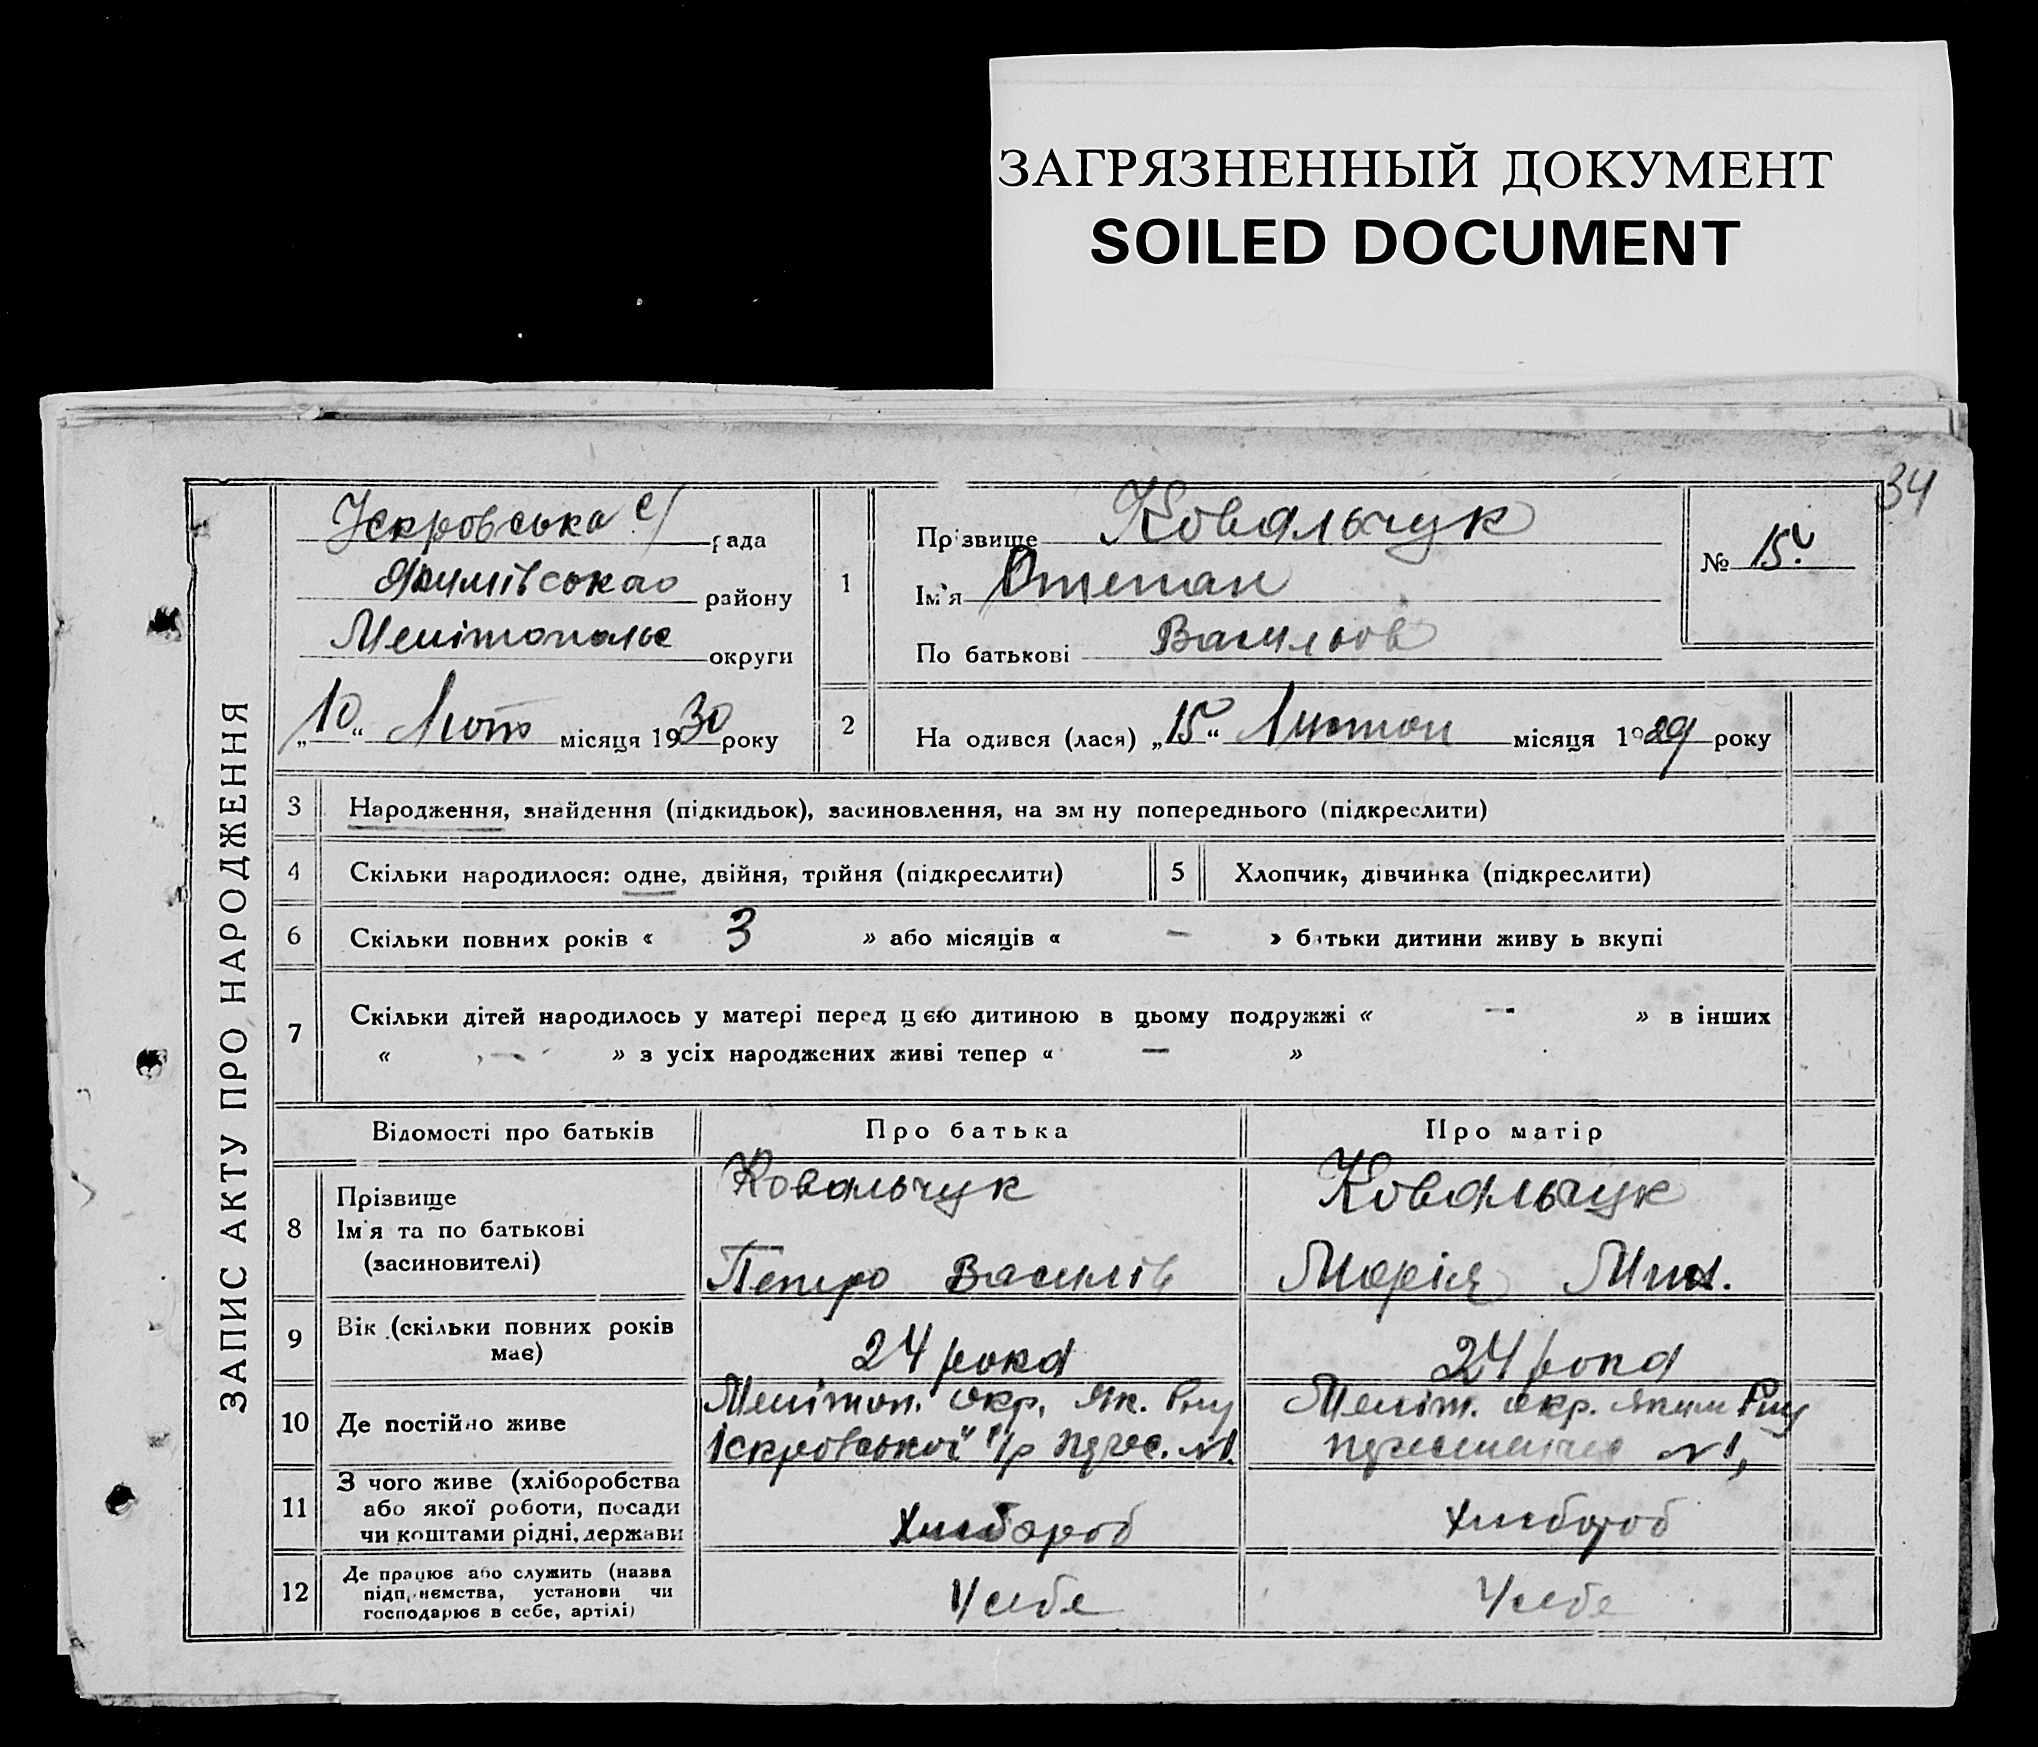 ЗАГРЯЗНЕННЫЙ ДОКУМЕНТ
SOILED DOCUMENT
34
ЗАПИС АКТУ ПРО НАРОДЖЕННЯ
Іскровська с/рада
району
Мелітопольс округи
„10“ Лютого місяця 1930 року
1
Прізвище Ковальчук
Ім'я Степан
По батькові Васильов
№ 15
2
На одився (лася) „15“ Листоп місяця 1929 року
3 Народження, знайдення (підкидьок), засиновлення, на зм ну попереднього (підкреслити)
4 Скільки народилося: одне, двійня, трійня (підкреслити)
5 Хлопчик, дівчинка (підкреслити)
6 Скільки повних років « 3 » або місяців « — » батьки дитини живу ь вкупі
7 Скільки дітей народилось у матері перед цією дитиною в цьому подружжі « — » в інших
« — » з усіх народжених живі тепер « — »
Відомості про батьків Про батька Про матір
8 Прізвище
Ім'я та по батькові
(засиновителі)
Ковальчук
Петро Василів
Ковальчук
Марія Мих.
9 Вік (скільки повних років
має)
24 рока
24 рока
10 Де постійно живе
Мелітоп. окр. Як. Р-ну
Іскровської с/р №1.
Меліт. окр. Яким Р-ну
№1,
11 З чого живе (хліборобства
або якої роботи, посади
чи коштами рідні, держави
Хлебороб
Хлебороб
12 Де працює або служить (назва
підп, иємства, установи чи
господарює в себе, артілі)
У себе
У себе